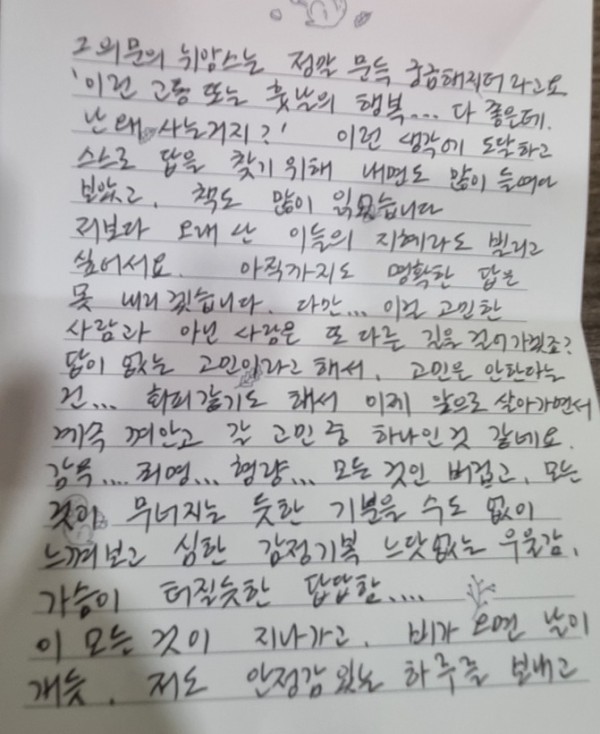 그 의문의 뉘앙스는 정말 문득 궁금해지더라고요
'이런 고통 또는 훗날의 행복... 다 좋은데.
난 왜 사는거지?' 이런 생각에 도달하고
스스로 답을 찾기 위해 내면도 많이 들여다
보았고, 책도 많이 읽었습니다
저보다 오래 산 이들의 지혜라도 빌리고
싶어서요. 아직까지도 명확한 답은
못 내리겠습니다. 다만... 이걸 고민한
사람과 아닌 사람은 또 다른 길을 걸어가겠죠?
답이 없는 고민이라고 해서, 고민은 안한다는
건... 회피같기도 해서 이제 앞으로 살아가면서
계속 껴안고 갈 고민 중 하나인 것 같네요.
감옥.... 죄명... 형량... 모든 것인 버겁고, 모든
것이 무너지는 듯한 기분을 수도 없이
느껴보고 심한 감정기복 느닷없는 우울감,
가슴이 터질듯한 답답함....
이 모든 것이 지나가고, 비가 오면 날이
개듯, 저도 안정감있는 하루를 보내고